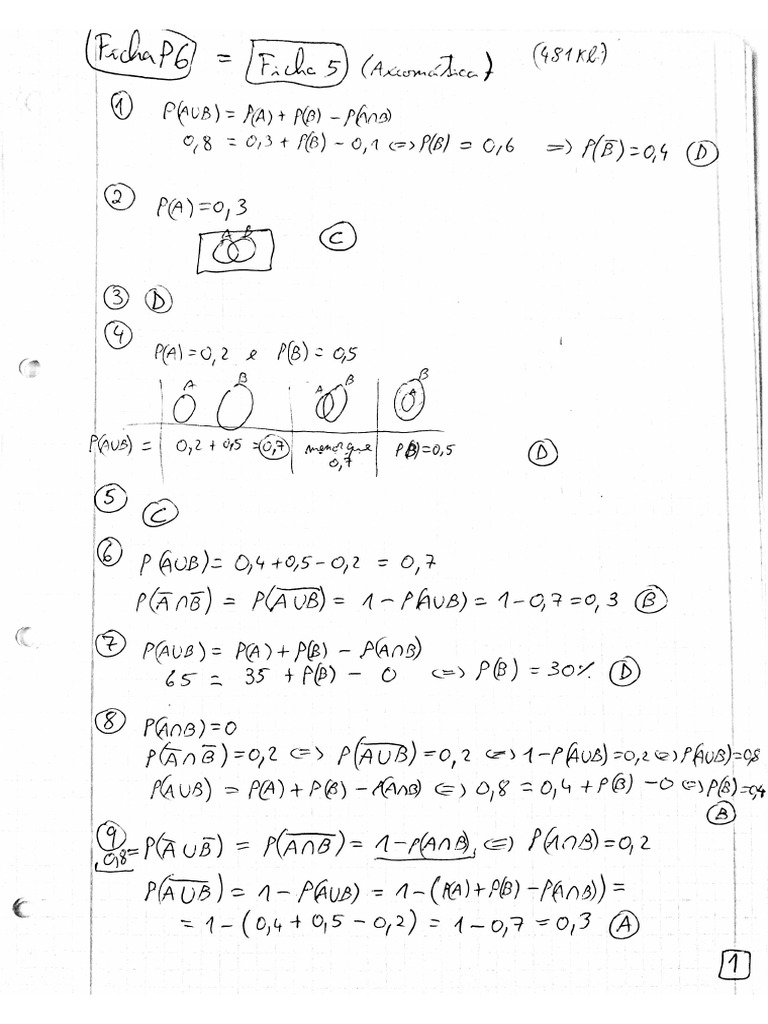 Ficha P6 = Ficha 5 (Axiomática) (481Kb)
① P(A∪B) = P(A) + P(B) − P(A∩B)
0,8 = 0,3 + P(B) − 0,1 ⇔ P(B) = 0,6 ⇒ P(B̅) = 0,4 Ⓓ
② P(A) = 0,3
A B Ⓒ
③ Ⓓ
④
P(A) = 0,2 e P(B) = 0,5
A B A B A B
P(A∪B) = 0,2 + 0,5 = 0,7 menor que 0,7 P(B) = 0,5 Ⓓ
⑤ Ⓒ
⑥ P(A∪B) = 0,4 + 0,5 − 0,2 = 0,7
P(A̅ ∩ B̅) = P(A̅∪̅B̅) = 1 − P(A∪B) = 1 − 0,7 = 0,3 Ⓑ
⑦ P(A∪B) = P(A) + P(B) − P(A∩B)
65 = 35 + P(B) − 0 ⇔ P(B) = 30% Ⓓ
⑧ P(A∩B) = 0
P(A̅ ∩ B̅) = 0,2 ⇔ P(A̅∪̅B̅) = 0,2 ⇔ 1 − P(A∪B) = 0,2 ⇔ P(A∪B) = 0,8
P(A∪B) = P(A) + P(B) − P(A∩B) ⇔ 0,8 = 0,4 + P(B) − 0 ⇔ P(B) = 0,4
Ⓑ
⑨ 0,8 = P(A̅ ∪ B̅) = P(A̅∩̅B̅) = 1 − P(A∩B) ⇔ P(A∩B) = 0,2
P(A̅∪̅B̅) = 1 − P(A∪B) = 1 − (P(A) + P(B) − P(A∩B)) =
= 1 − (0,4 + 0,5 − 0,2) = 1 − 0,7 = 0,3 Ⓐ
1